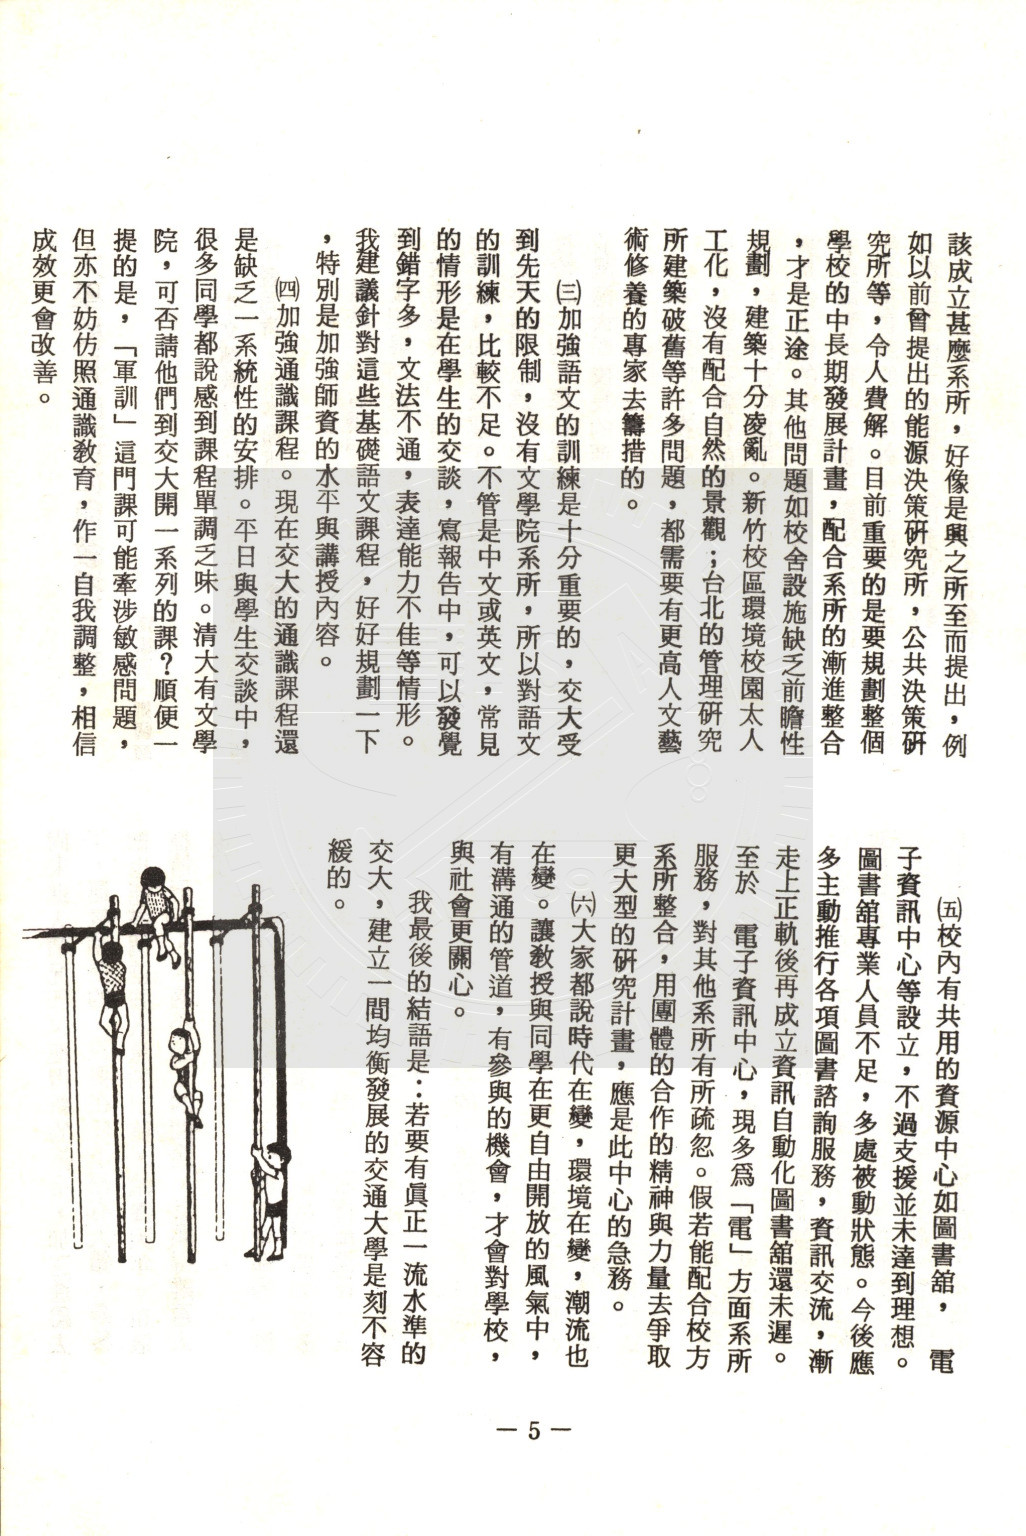 該成立甚麼系所，好像是興之所至而提出，例
如以前曾提出的能源決策研究所，公共決策研
究所等，令人費解。目前重要的是要規劃整個
學校的中長期發展計畫，配合系所的漸進整合
，才是正途。其他問題如校舍設施缺乏前瞻性
規劃，建築十分凌亂。新竹校區環境校園太人
工化，沒有配合自然的景觀；台北的管理研究
所建築破舊等許多問題，都需要有更高人文藝
術修養的專家去籌措的。
㈢加強語文的訓練是十分重要的，交大受
到先天的限制，沒有文學院系所，所以對語文
的訓練，比較不足。不管是中文或英文，常見
的情形是在學生的交談，寫報告中，可以發覺
到錯字多，文法不通，表達能力不佳等情形。
我建議針對這些基礎語文課程，好好規劃一下
，特別是加強師資的水平與講授內容。
㈣加強通識課程。現在交大的通識課程還
是缺乏一系統性的安排。平日與學生交談中，
很多同學都說感到課程單調乏味。清大有文學
院，可否請他們到交大開一系列的課？順便一
提的是，「軍訓」這門課可能牽涉敏感問題，
但亦不妨仿照通識教育，作一自我調整，相信
成效更會改善。
㈤校內有共用的資源中心如圖書舘，電
子資訊中心等設立，不過支援並未達到理想。
圖書舘專業人員不足，多處被動狀態。今後應
多主動推行各項圖書諮詢服務，資訊交流，漸
走上正軌後再成立資訊自動化圖書舘還未遲。
至於 電子資訊中心，現多爲「電」方面系所
服務，對其他系所有所疏忽。假若能配合校方
系所整合，用團體的合作的精神與力量去爭取
更大型的研究計畫，應是此中心的急務。
㈥大家都說時代在變，環境在變，潮流也
在變。讓教授與同學在更自由開放的風氣中，
有溝通的管道，有參與的機會，才會對學校，
與社會更關心。
我最後的結語是：若要有眞正一流水準的
交大，建立一間均衡發展的交通大學是刻不容
緩的。
— 5 —